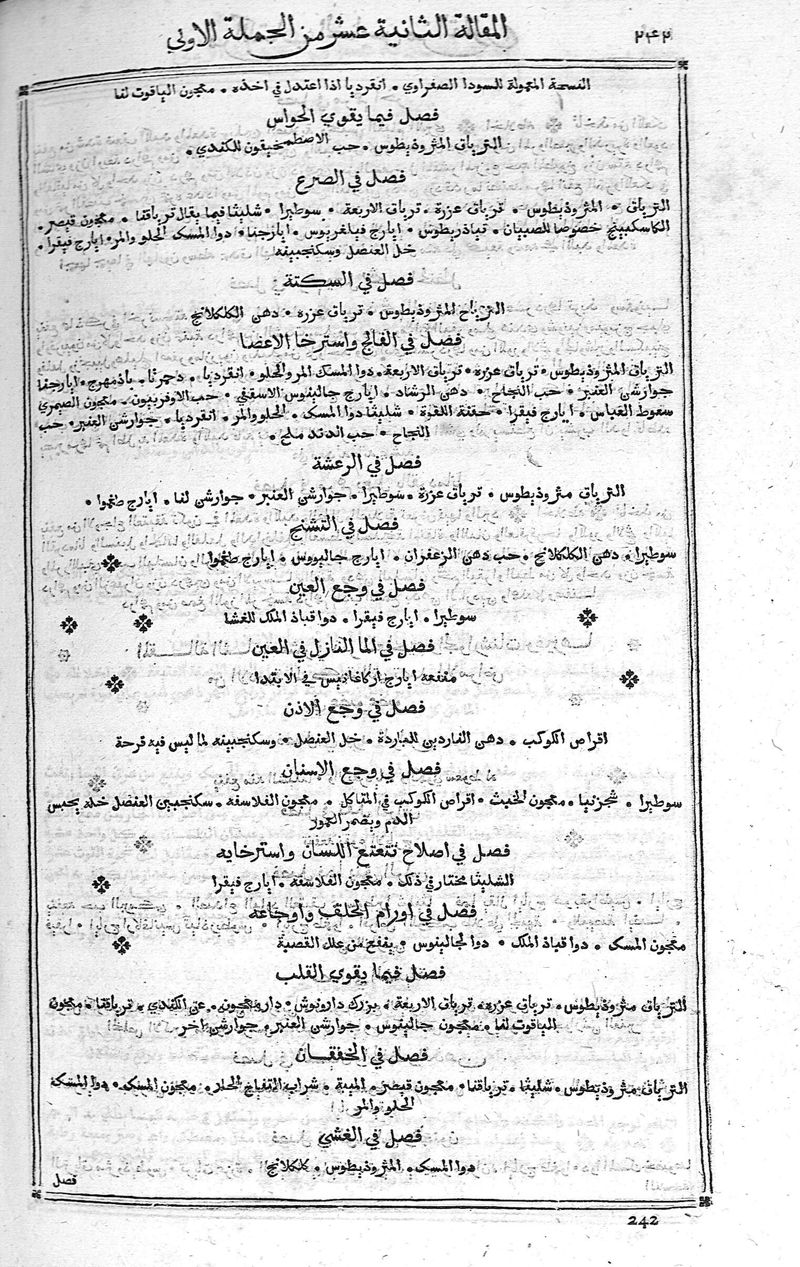 ٢٤٢
المقالة الثانية عشر من الجملة الاولى
النسخة المتموله للسودا الصفراوي . انقرديا اذا اعتدل في اخذه . معجون الياقوت لفا
فصل فيما يقوي الحواس
الترياق المثروذيطوس . حب الاصطمخيقون للكندي .
فصل في الصرع
الترياق . المثروذيطوس . ترياق عزرة . ترياق الاربعة . سوطيرا . شليثا فيما يقال ترياقنا . معجون قيصر .
الكاسكبينج خصوصا للصبيان . تياذريطوس . ايارج فيلغريوس . ايارجنا . دوا المسك الحلو والمر . ايارج فيقرا .
خل العنصل وسكنجبينه
فصل في السكتة
الترياح المثروذيطوس . ترياق عزره . دهن الكلكلانج
فصل في الفالج واسترخا الاعضا
الترياق المثروذيطوس . ترياق عزرة . ترياق الاربعة . دوا المسك المر والحلو . انقرديا . دحمرثا . باذمهرج . ايارجفا
جوارشن العنبر . حب النجاح . دهن الرشاد . ايارج جالينوس الاسقفي . حب الاوفربيون . معجون الصيمري
سعوط العباس . ايارج فيقرا . حقنة اللقوة . شليثا دوا المسك . الحلو والمر . انقرديا . جوارشن العنبر . حب
النجاح . حب الدند ملح .
فصل في الرعشة
الترياق مثروذيطوس . ترياق عزرة . سوطيرا . جوارشن العنبر . جوارشن لفا . ايارج طتموا .
فصل في التشنج
سوطيرا . دهن الكلكلانج . حب دهن الزعفران . ايارج جالينوس . ايارج طتموا
فصل في وجع العين
سوطيرا . ايارج فيقرا . دوا قباذ الملك للغشا
فصل في الما النازل في العين
منفعه ايارج اركاغانيس في الابتدا
فصل في وجع الاذن
اقراص الكوكب . دهن الناردين للباردة . خل العنصل . وسكنجبينه لما ليس فيه قرحة
فصل في وجع الاسنان
سوطيرا . شجزنيا . معجون الخبث . اقراص الكوكب في المتاكل . معجون الفلاسفه . سكنجبين العنصل خله يحبس
الدم ويضمر العمور
فصل في اصلاح تتعتع اللسان واسترخايه
الشليثا مختار في ذلك . معجون الفلاسفه . ايارج فيقرا
فصل في اورام الحلق واوجاعه
معجون المسك . دوا قباذ الملك . دوا لجالينوس . ينفع من علل القصبة
فصل فيما يقوي القلب
الترياق مثروذيطوس . ترياق عزره . ترياق الاربعة . بزرك دارونوش . دارومعجون . عن الكندي . ترياقنا . معجون
الياقوت لفا . معجون جالينوس . جوارشن العنبر . جوارشن اخر
فصل في الخفقان
الترياق مثروذيطوس . شليثا . ترياقنا . معجون قيصر . الميبة . شراب التفاح الحلو . معجون المسك . دوا المسك
الحلو والمر
فصل في الغشي
دوا المسك . المثروذيطوس . كلكلانج
فصل
242